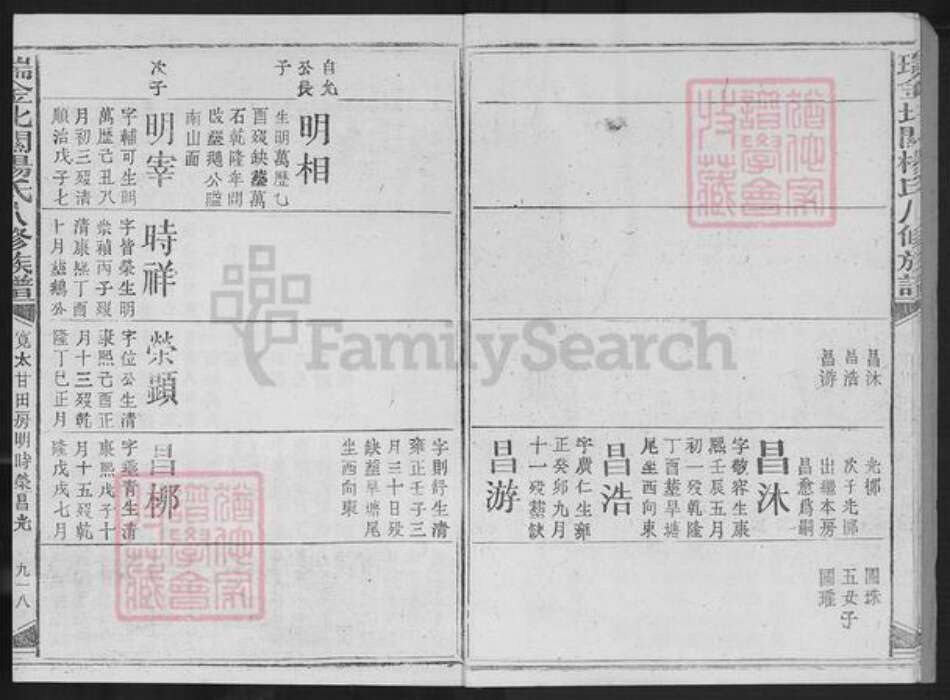 昌沐
昌浩
昌游
光挪
次子光挪
出繼本房
昌憃爲嗣
昌沐
字敬容生康
熙壬辰五月
初一歿乾隆
丁酉塟旱塘
尾坐西向東
昌浩
字廣仁生雍
正癸卯九月
十一歿墓缺
昌游
字則舒生清
雍正壬子三
月三十日歿
缺塟旱塘尾
坐西向東
國珠
五女子
國瓘
自允
公長
子
明相
生明萬歷乙
酉歿缺塟萬
石乾隆年間
改塟鵝公㟷
南山面
次子
明宰
字輔可生明
萬歷己丑八
月初三歿清
順治戊子七
時祥
字皆榮生明
崇禎丙子歿
清康熙丁酉
十月塟鵝公
榮顯
字位公生清
康熙己酉正
月十三歿乾
隆丁巳正月
昌梛
字蘂青生清
康熙戊子十
月十五歿乾
隆戊戌七月
瑞金北關楊氏八修族譜
寬太甘田房明時榮昌光
九一八
瑞金北關楊氏八修族譜
猶他家
譜學會
收藏
猶他家
譜學會
收藏
FamilySearch